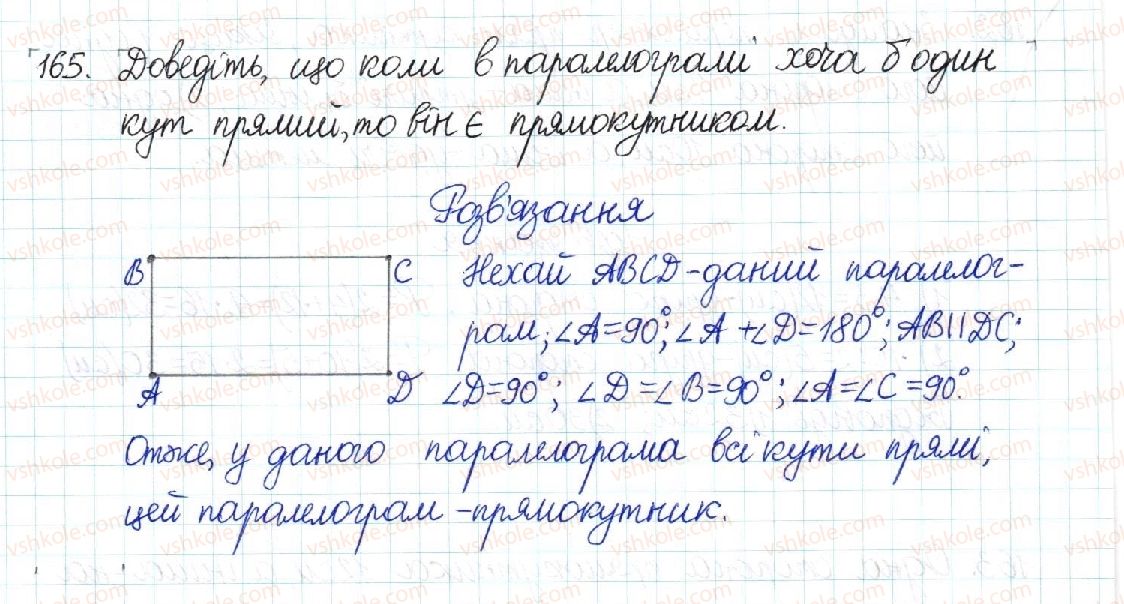 165. Доведіть, що коли в паралелограмі хоча б один
кут прямий, то він є прямокутником.
Розв'язання
B C Нехай ABCD - даний паралелог-
рам; ∠A = 90°; ∠A + ∠D = 180°; AB || DC;
A D ∠D = 90°; ∠D = ∠B = 90°; ∠A = ∠C = 90°.
Отже, у даного паралелограма всі кути прямі,
цей паралелограм - прямокутник.